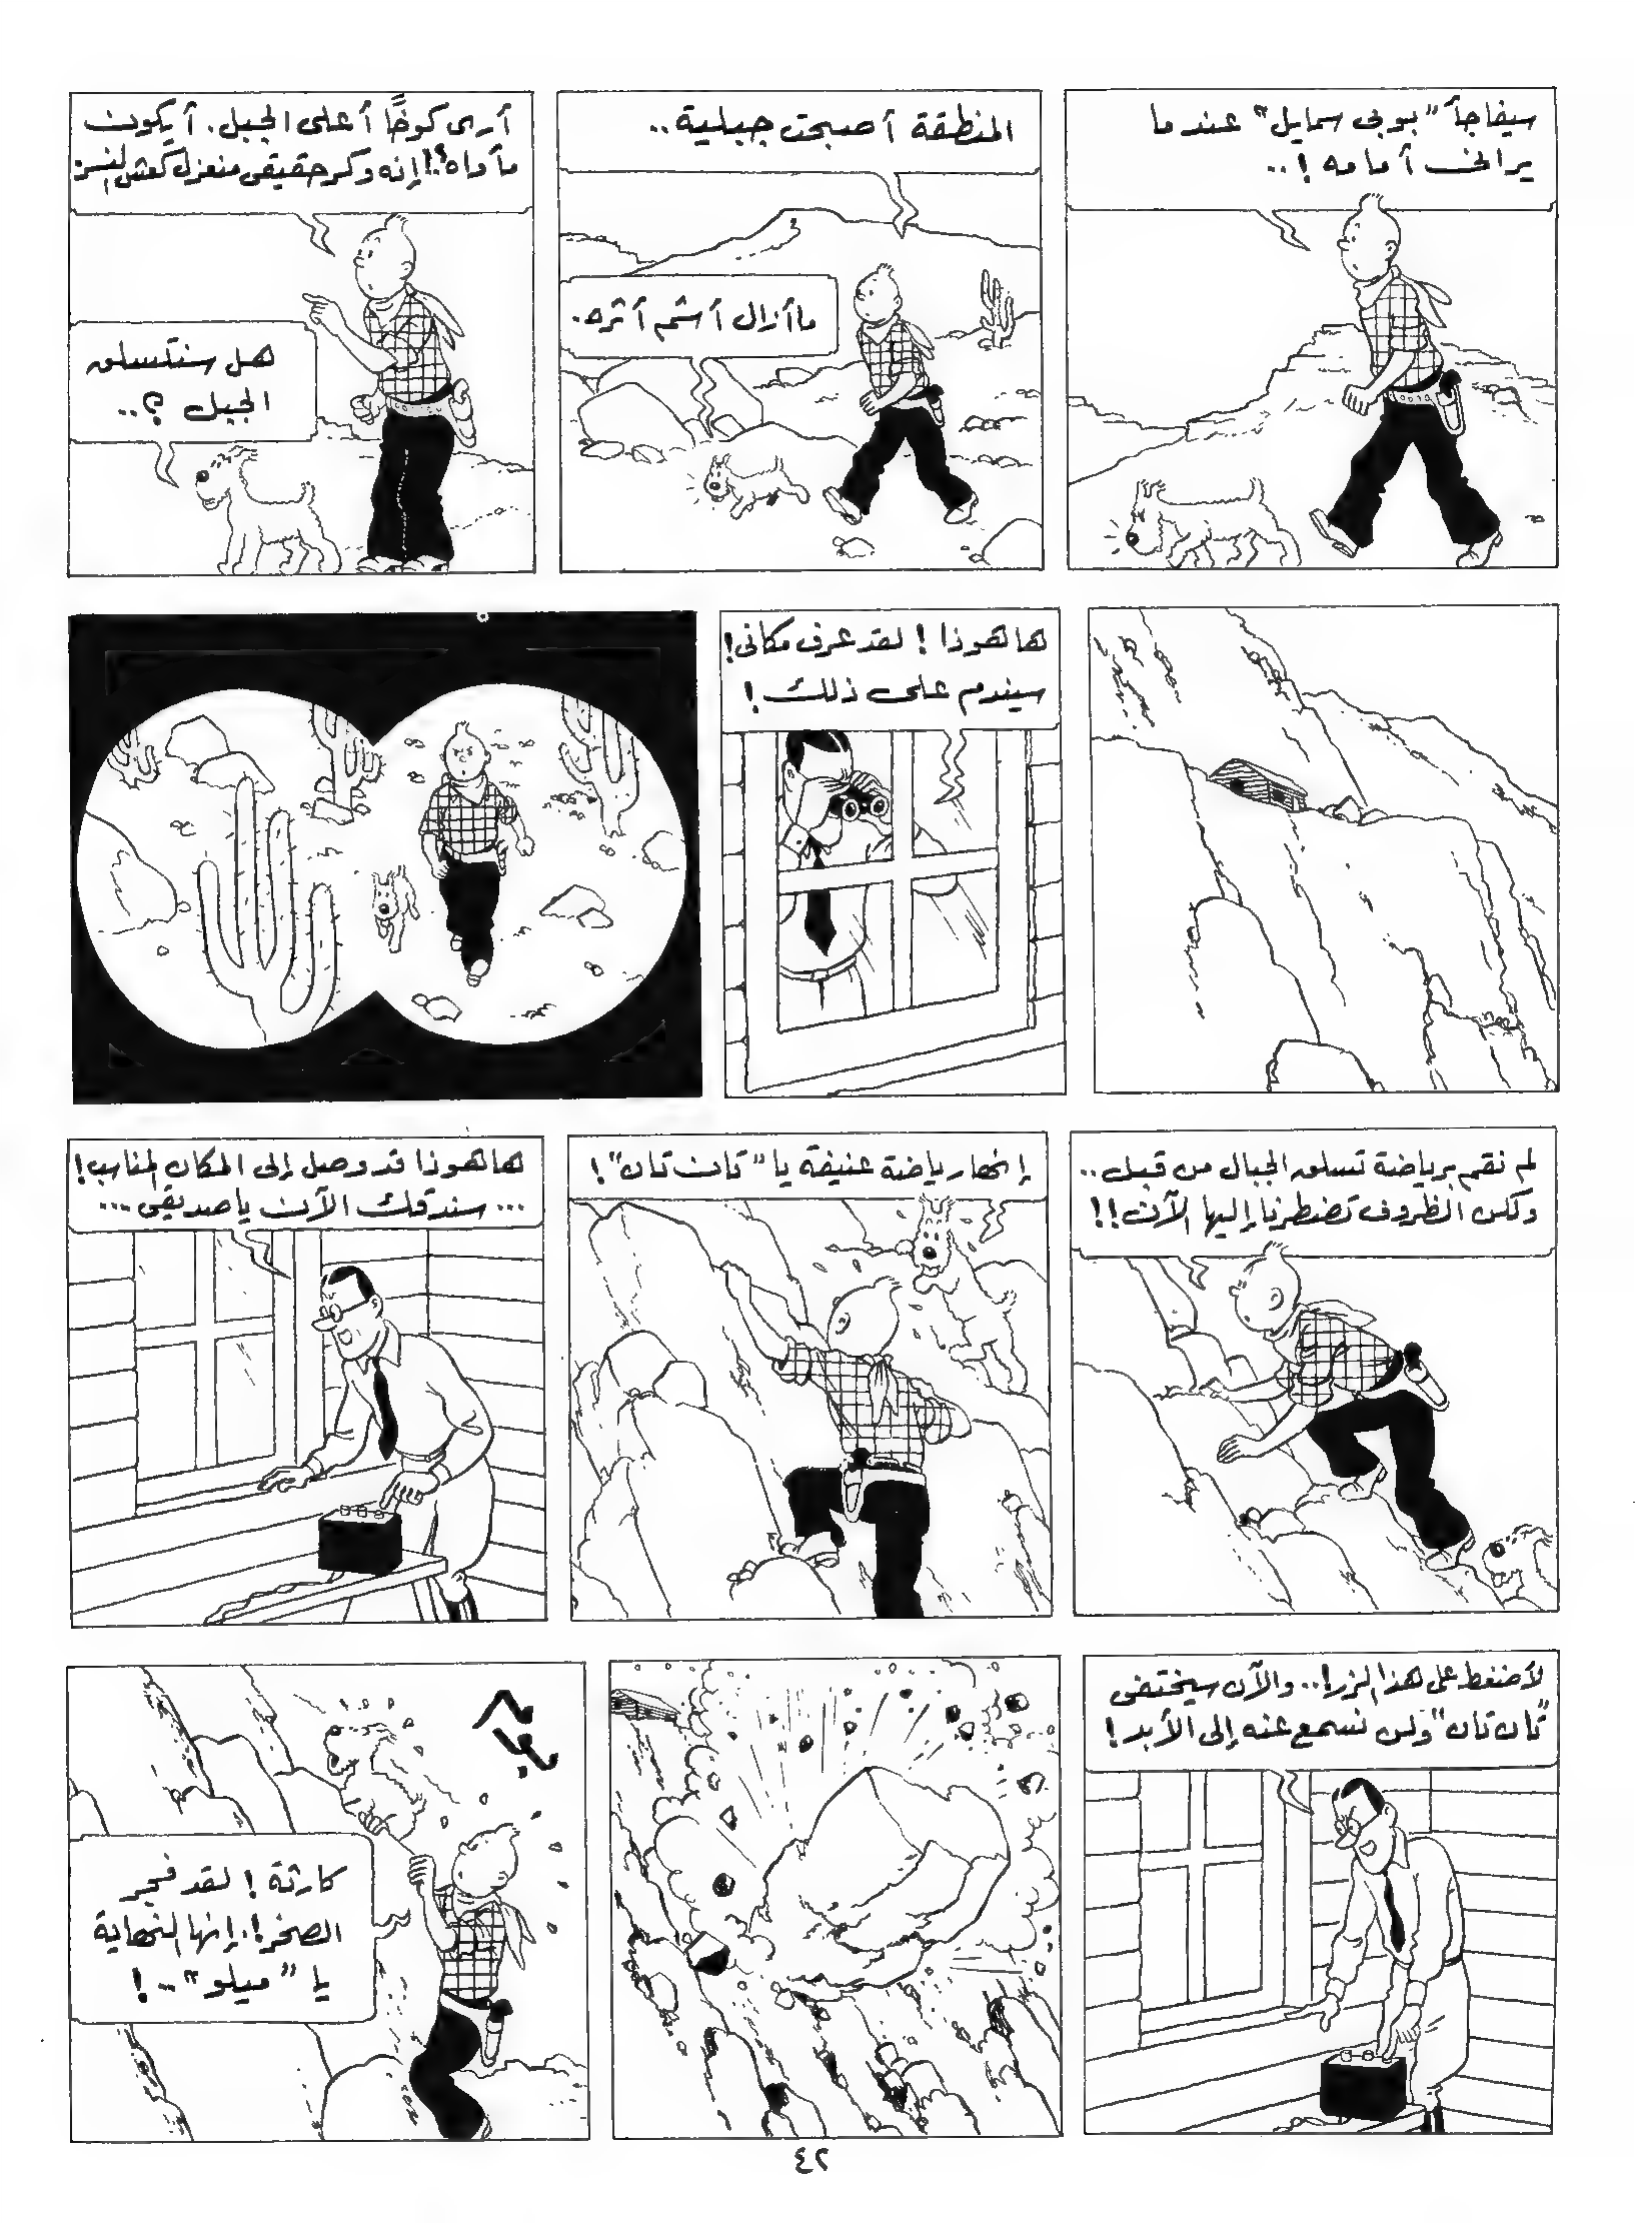 سيفاجأ "بوبى سمايل" عندما
يرانى أمامه !..
المنطقة أصبحت جبلية..
مأأزال أشم أثره.
أرى كوخًا أعلى الجبل. أيكون
مأواه؟! إنه وكر حقيقى منعزل كعش النسر
هل سنتسلق
الجبل ؟..
هاهوذا ! لقد عرف مكانى !
سيندم على ذلك !
لم نقم برياضة تسلق الجبال من قبل..
ولكن الظروف تضطرنا إليها الآن !!
إنها رياضة عنيفة يا "تان تان" !
هاهوذا قد وصل إلى المكان المناسب !
... سندقك الآن ياصديقى ...
لأضغط على هذا الزر !.. والآن سيختفى
"تان تان" ولن نسمع عنه إلى الأبد !
كارثة ! لقد فجر
الصخر !. إنها النهاية
يا "ميلو" .. !
٤٢